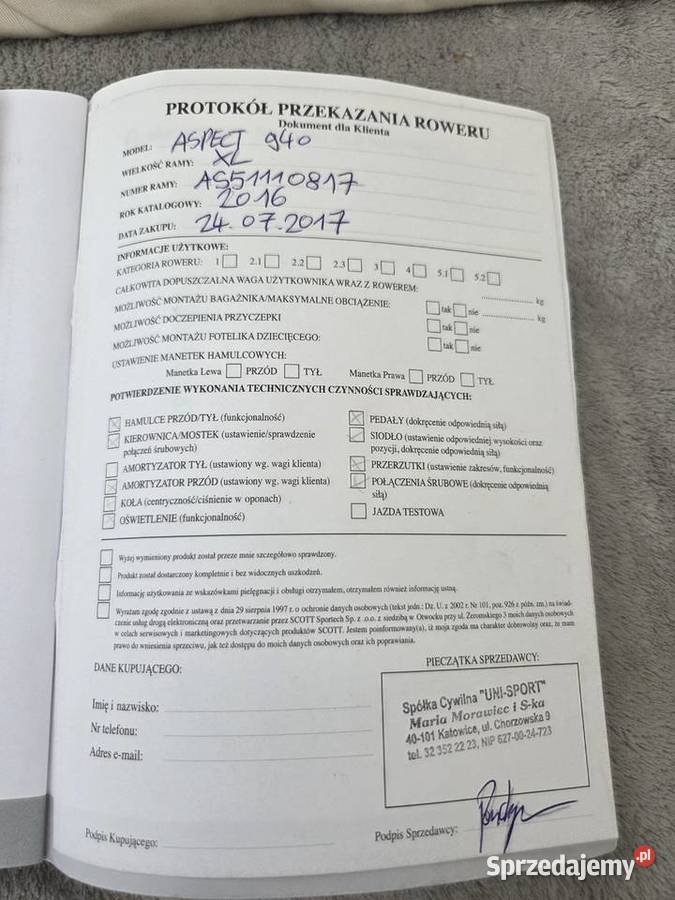 PROTOKÓŁ PRZEKAZANIA ROWERU
Dokument dla Klienta
MODEL: ASPECT 940
WIELKOŚĆ RAMY: XL
NUMER RAMY: AS51110817
ROK KATALOGOWY: 2016
DATA ZAKUPU: 24.07.2017
INFORMACJE UŻYTKOWE:
KATEGORIA ROWERU: 1 2.1 2.2 2.3 3 4 5.1 5.2
CAŁKOWITA DOPUSZCZALNA WAGA UŻYTKOWNIKA WRAZ Z ROWEREM: kg
MOŻLIWOŚĆ MONTAŻU BAGAŻNIKA/MAKSYMALNE OBCIĄŻENIE: tak nie kg
MOŻLIWOŚĆ DOCZEPIENIA PRZYCZEPKI tak nie
MOŻLIWOŚĆ MONTAŻU FOTELIKA DZIECIĘCEGO: tak nie
USTAWIENIE MANETEK HAMULCOWYCH:
Manetka Lewa PRZÓD TYŁ Manetka Prawa PRZÓD TYŁ
POTWIERDZENIE WYKONANIA TECHNICZNYCH CZYNNOŚCI SPRAWDZAJĄCYCH:
HAMULCE PRZÓD/TYŁ (funkcjonalność)
KIEROWNICA/MOSTEK (ustawienie/sprawdzenie
połączeń śrubowych)
AMORTYZATOR TYŁ (ustawiony wg. wagi klienta)
AMORTYZATOR PRZÓD (ustawiony wg. wagi klienta)
KOŁA (centryczność/ciśnienie w oponach)
OŚWIETLENIE (funkcjonalność)
PEDAŁY (dokręcenie odpowiednią siłą)
SIODŁO (ustawienie odpowiedniej wysokości oraz
pozycji, dokręcenie odpowiednią siłą)
PRZERZUTKI (ustawienie zakresów, funkcjonalność)
POŁĄCZENIA ŚRUBOWE (dokręcenie odpowiednią
siłą)
JAZDA TESTOWA
Wyżej wymieniony produkt został przeze mnie szczegółowo sprawdzony.
Produkt został dostarczony kompletnie i bez widocznych uszkodzeń.
Informację użytkowania ze wskazówkami pielęgnacji i obsługi otrzymałem, otrzymałem również informację ustną.
Wyrażam zgodę zgodnie z ustawą z dnia 29 sierpnia 1997 r. o ochronie danych osobowych (tekst jedn.: Dz. U. z 2002 r. Nr 101, poz. 926 z późn. zm.) na świad-
czenie usług drogą elektroniczną oraz przetwarzanie przez SCOTT Sportech Sp. z .o.o. z siedzibą w Otwocku przy ul. Żeromskiego 3 moich danych osobowych
w celach serwisowych i marketingowych dotyczących produktów SCOTT. Jestem poinformowany(a), iż moja zgoda ma charakter dobrowolny oraz, że mam
prawo do wniesienia sprzeciwu, jak też dostępu do moich danych osobowych oraz ich poprawiania.
DANE KUPUJĄCEGO:
Imię i nazwisko:
Nr telefonu:
Adres e-mail:
Podpis Kupującego:
PIECZĄTKA SPRZEDAWCY:
Spółka Cywilna "UNI-SPORT"
Maria Morawiec i S-ka
40-101 Katowice, ul. Chorzowska 9
tel. 32 352 22 23, NIP 627-00-24-723
Podpis Sprzedawcy:
Sprzedajemy.pl